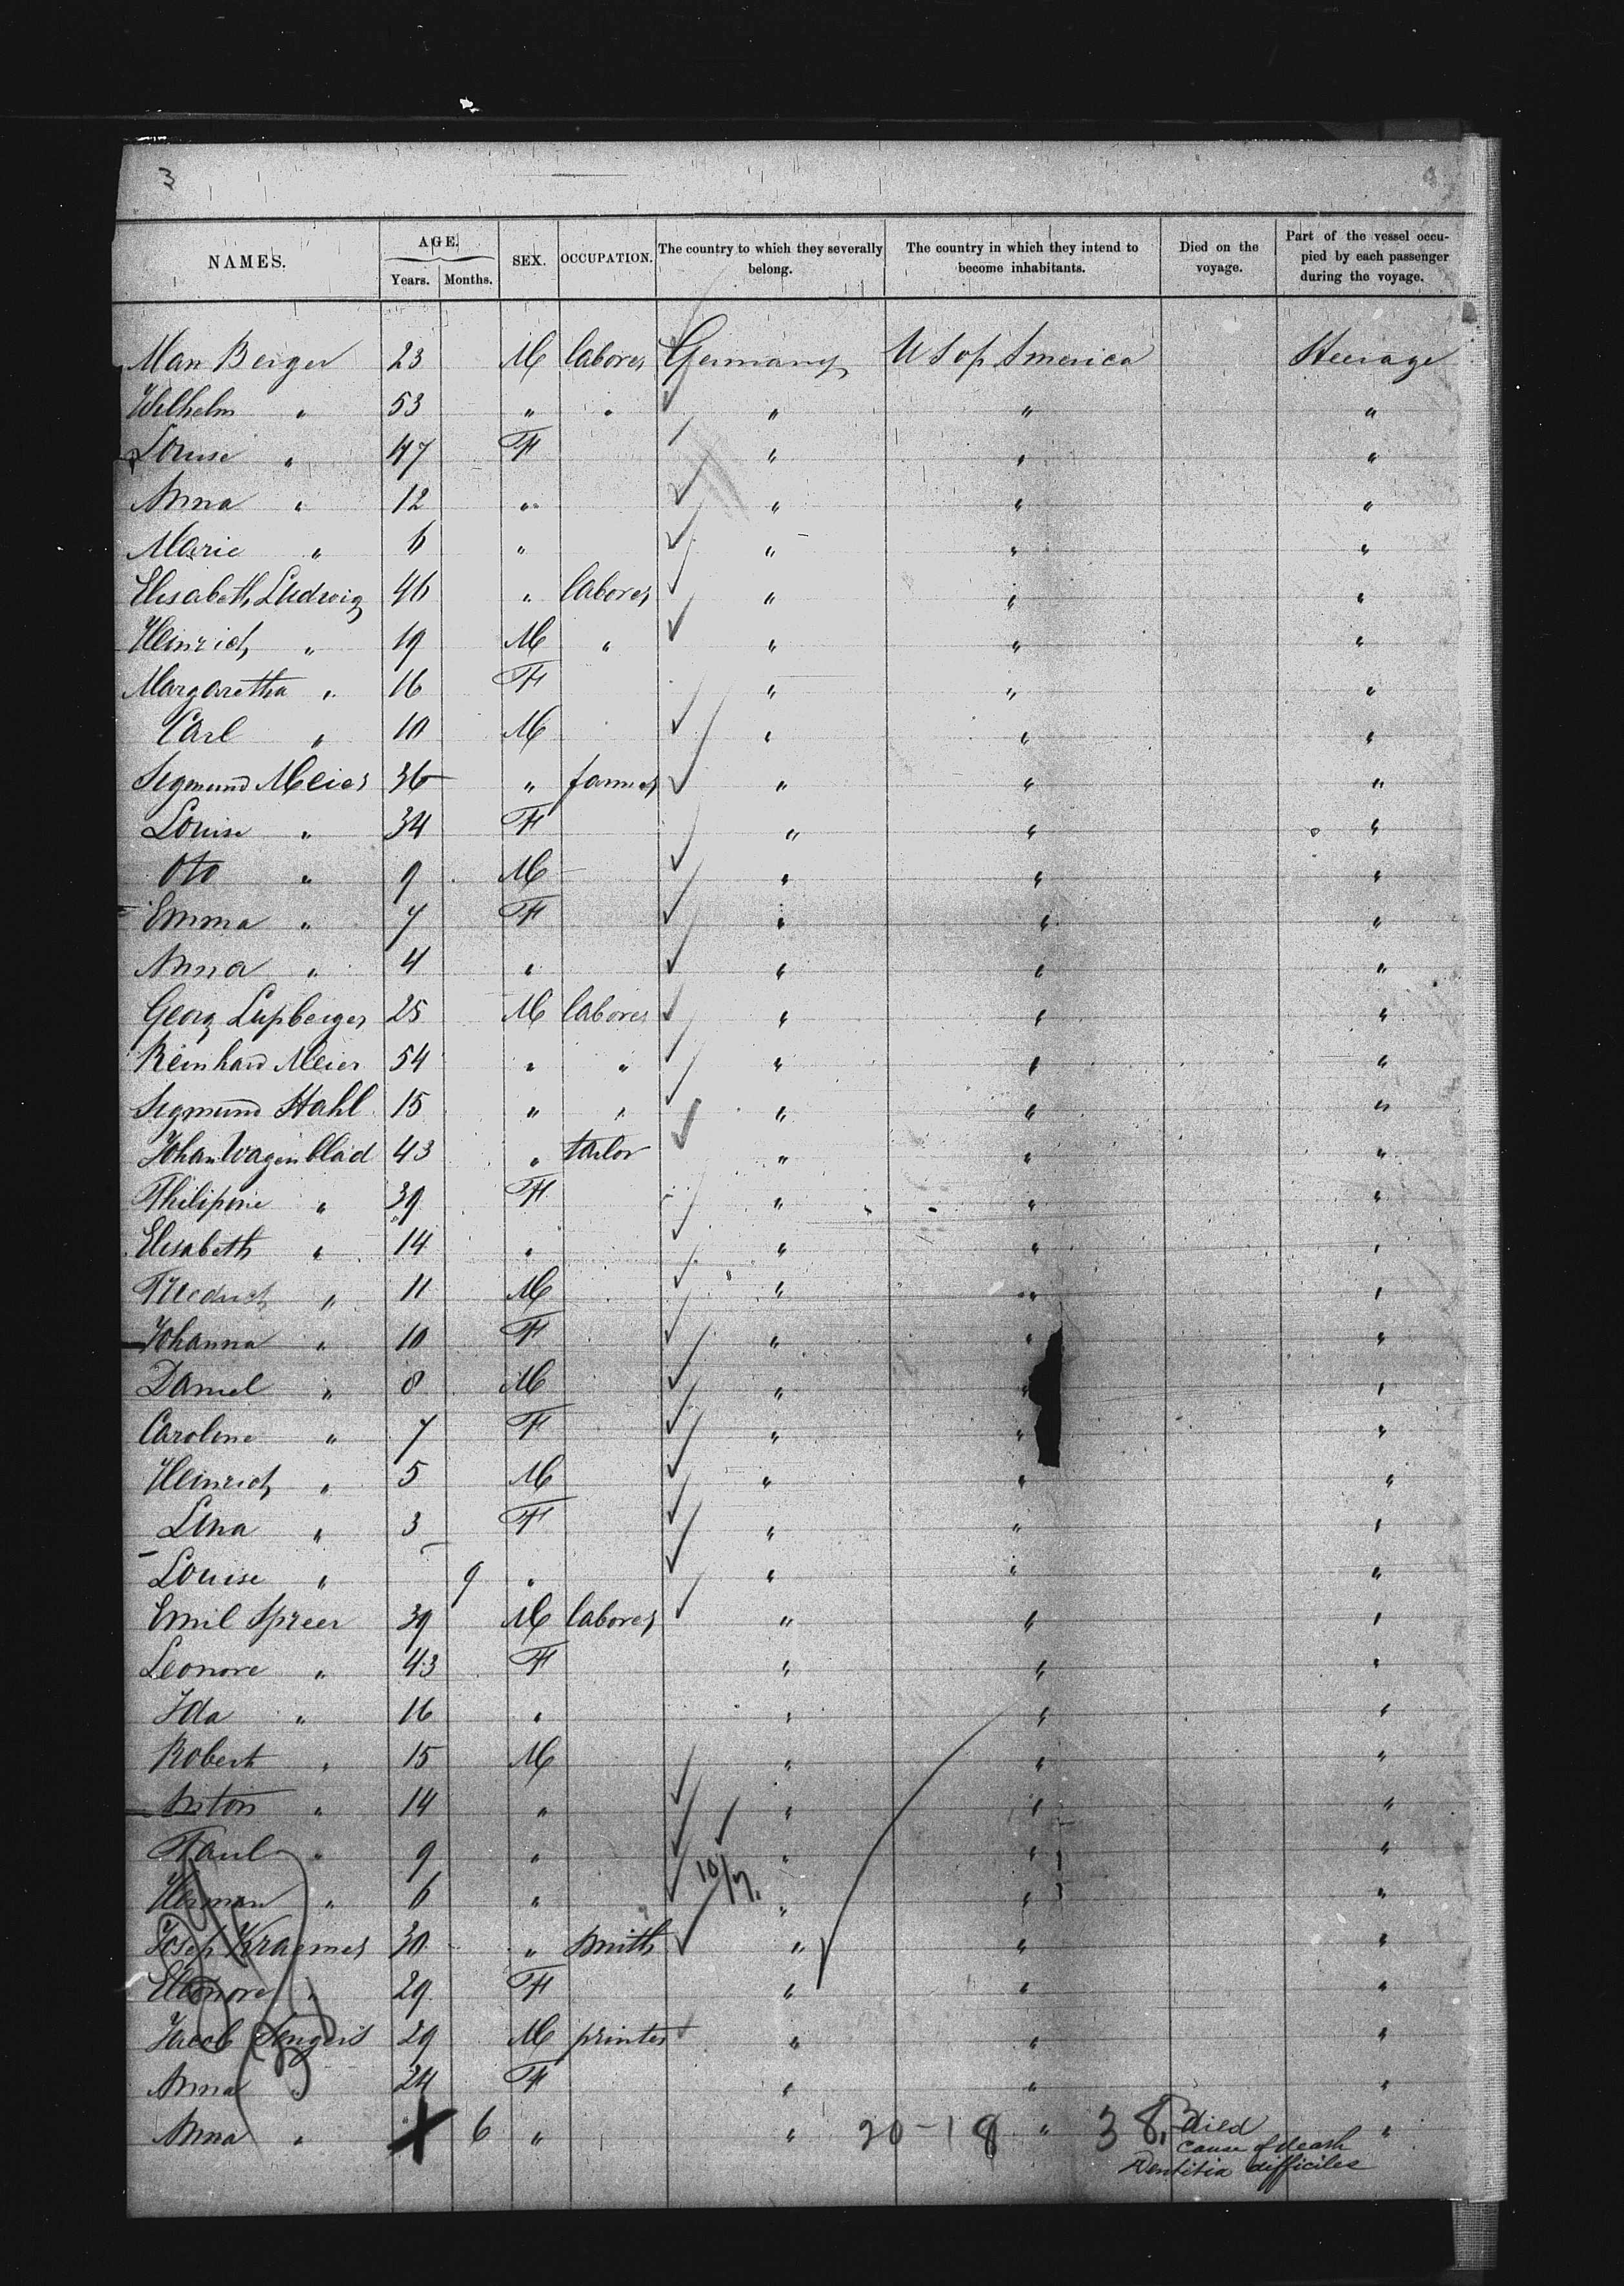 3
NAMES. AGE. Years. Months. SEX. OCCUPATION. The country to which they severally belong. The country in which they intend to become inhabitants. Died on the voyage. Part of the vessel occupied by each passenger during the voyage.
Man Berger 23 M laborer Germany U S of America Steerage
Wilhelm " 53 " " " " "
Louise " 47 F " " "
Anna " 12 " " " "
Marie " 6 " " " "
Elisabeth Ludwig 46 " laborer " " "
Heinrich " 19 M " " " "
Margaretha " 16 F " " "
Carl " 10 M " " "
Sigmund Meier 36 " farmer " " "
Louise " 34 F " " "
Oto " 9 M " " "
Emma " 7 F " " "
Anna " 4 " " " "
Georg Lupberger 25 M laborer " " "
Reinhard Meier 54 " " " " "
Sigmund Stahl 15 " " " " "
Johan Wagenblad 43 " tailor " " "
Philipine " 39 F " " "
Elisabeth " 14 " " " "
Friedrich " 11 M " " "
Johanna " 10 F " " "
Daniel " 8 M " " "
Caroline " 7 F " " "
Heinrich " 5 M " " "
Lina " 3 F " " "
Louise " 9 " " " "
Emil Spreer 39 M laborer " " "
Leonore " 43 F " " "
Ida " 16 " " " "
Robert " 15 M " " "
Anton " 14 " " " "
Paul " 9 " " " "
Herman " 6 " 10/7. " " "
Josep Kraemer 30 " smith " " "
Eleonore " 29 F " " "
Jacob 29 M printer " " "
Anna " 24 F " " "
Anna " 6 " " 20-18 " 38, died "
cause of death
Dentitia difficiles